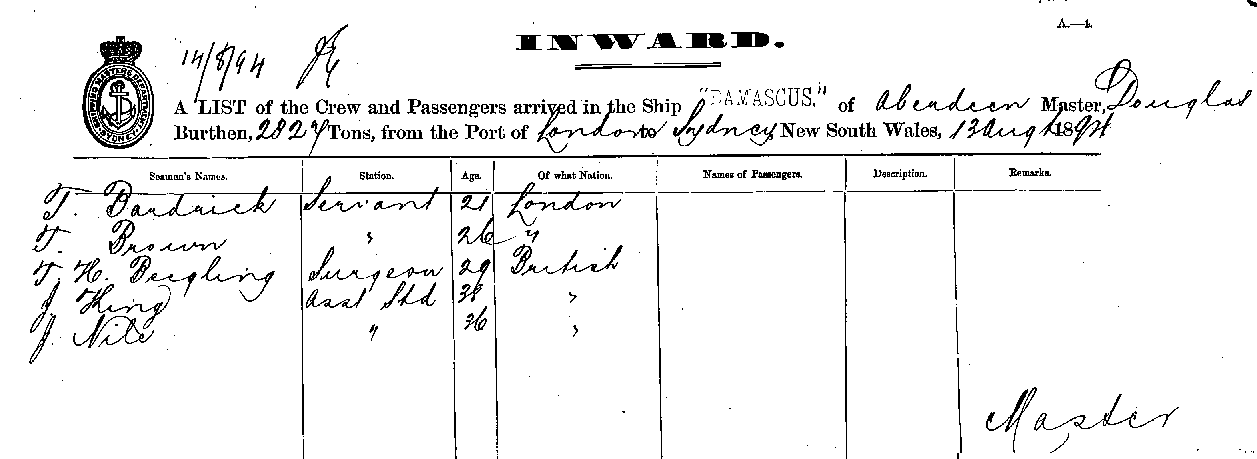 A.—1.
INWARD.
14/8/94
A LIST of the Crew and Passengers arrived in the Ship "DAMASCUS." of Aberdeen Master, Douglas
Burthen, 2827 Tons, from the Port of London to Sydney, New South Wales, 13 Augt 1894
Seaman's Names. Station. Age. Of what Nation. Names of Passengers. Description. Remarks.
T. Bardrick Servant 21 London
T. Brown " 26 "
T. H. Surgeon 29 British
J. King Asst Std 38 "
J. Nile " 36 "
Master